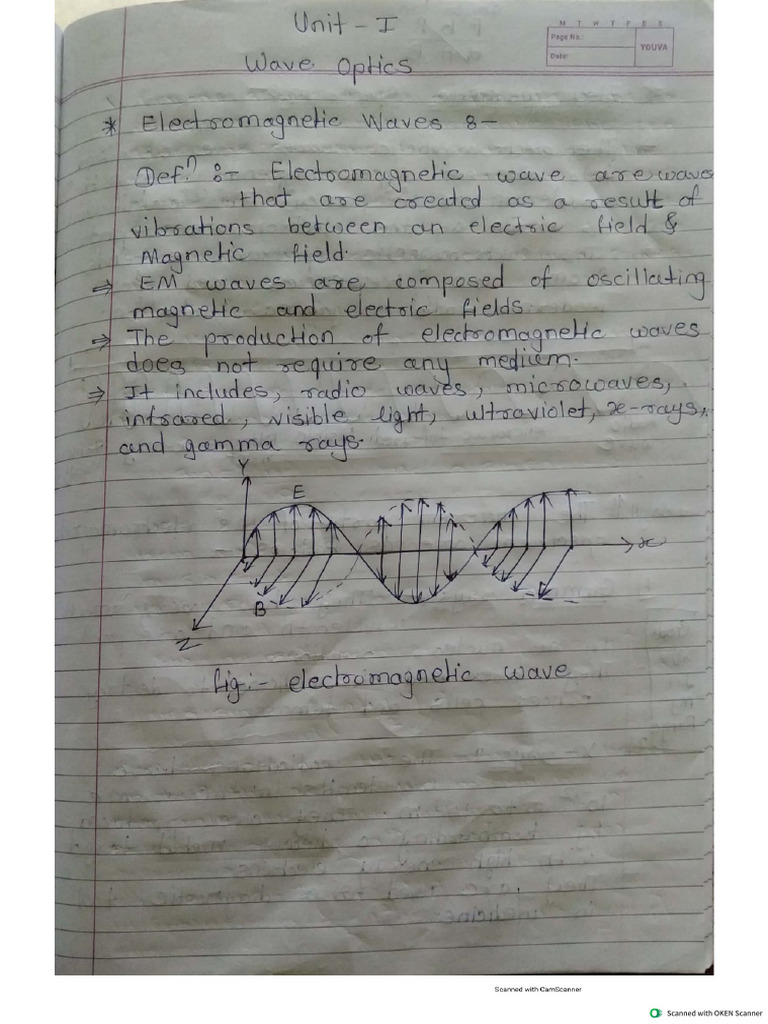 Unit - I
M T W T F S S
Page No.:
Date:
YOUVA
Wave Optics
* Electromagnetic Waves :-
Defⁿ :- Electromagnetic wave are waves
that are created as a result of
vibrations between an electric field &
Magnetic field.
⇒ EM waves are composed of oscillating
magnetic and electric fields.
⇒ The production of electromagnetic waves
does not require any medium.
⇒ It includes, radio waves, microwaves,
infrared, visible light, ultraviolet, x-rays,
and gamma rays.
Y
E
x
B
Z
fig:- electromagnetic wave
Scanned with CamScanner
Scanned with OKEN Scanner